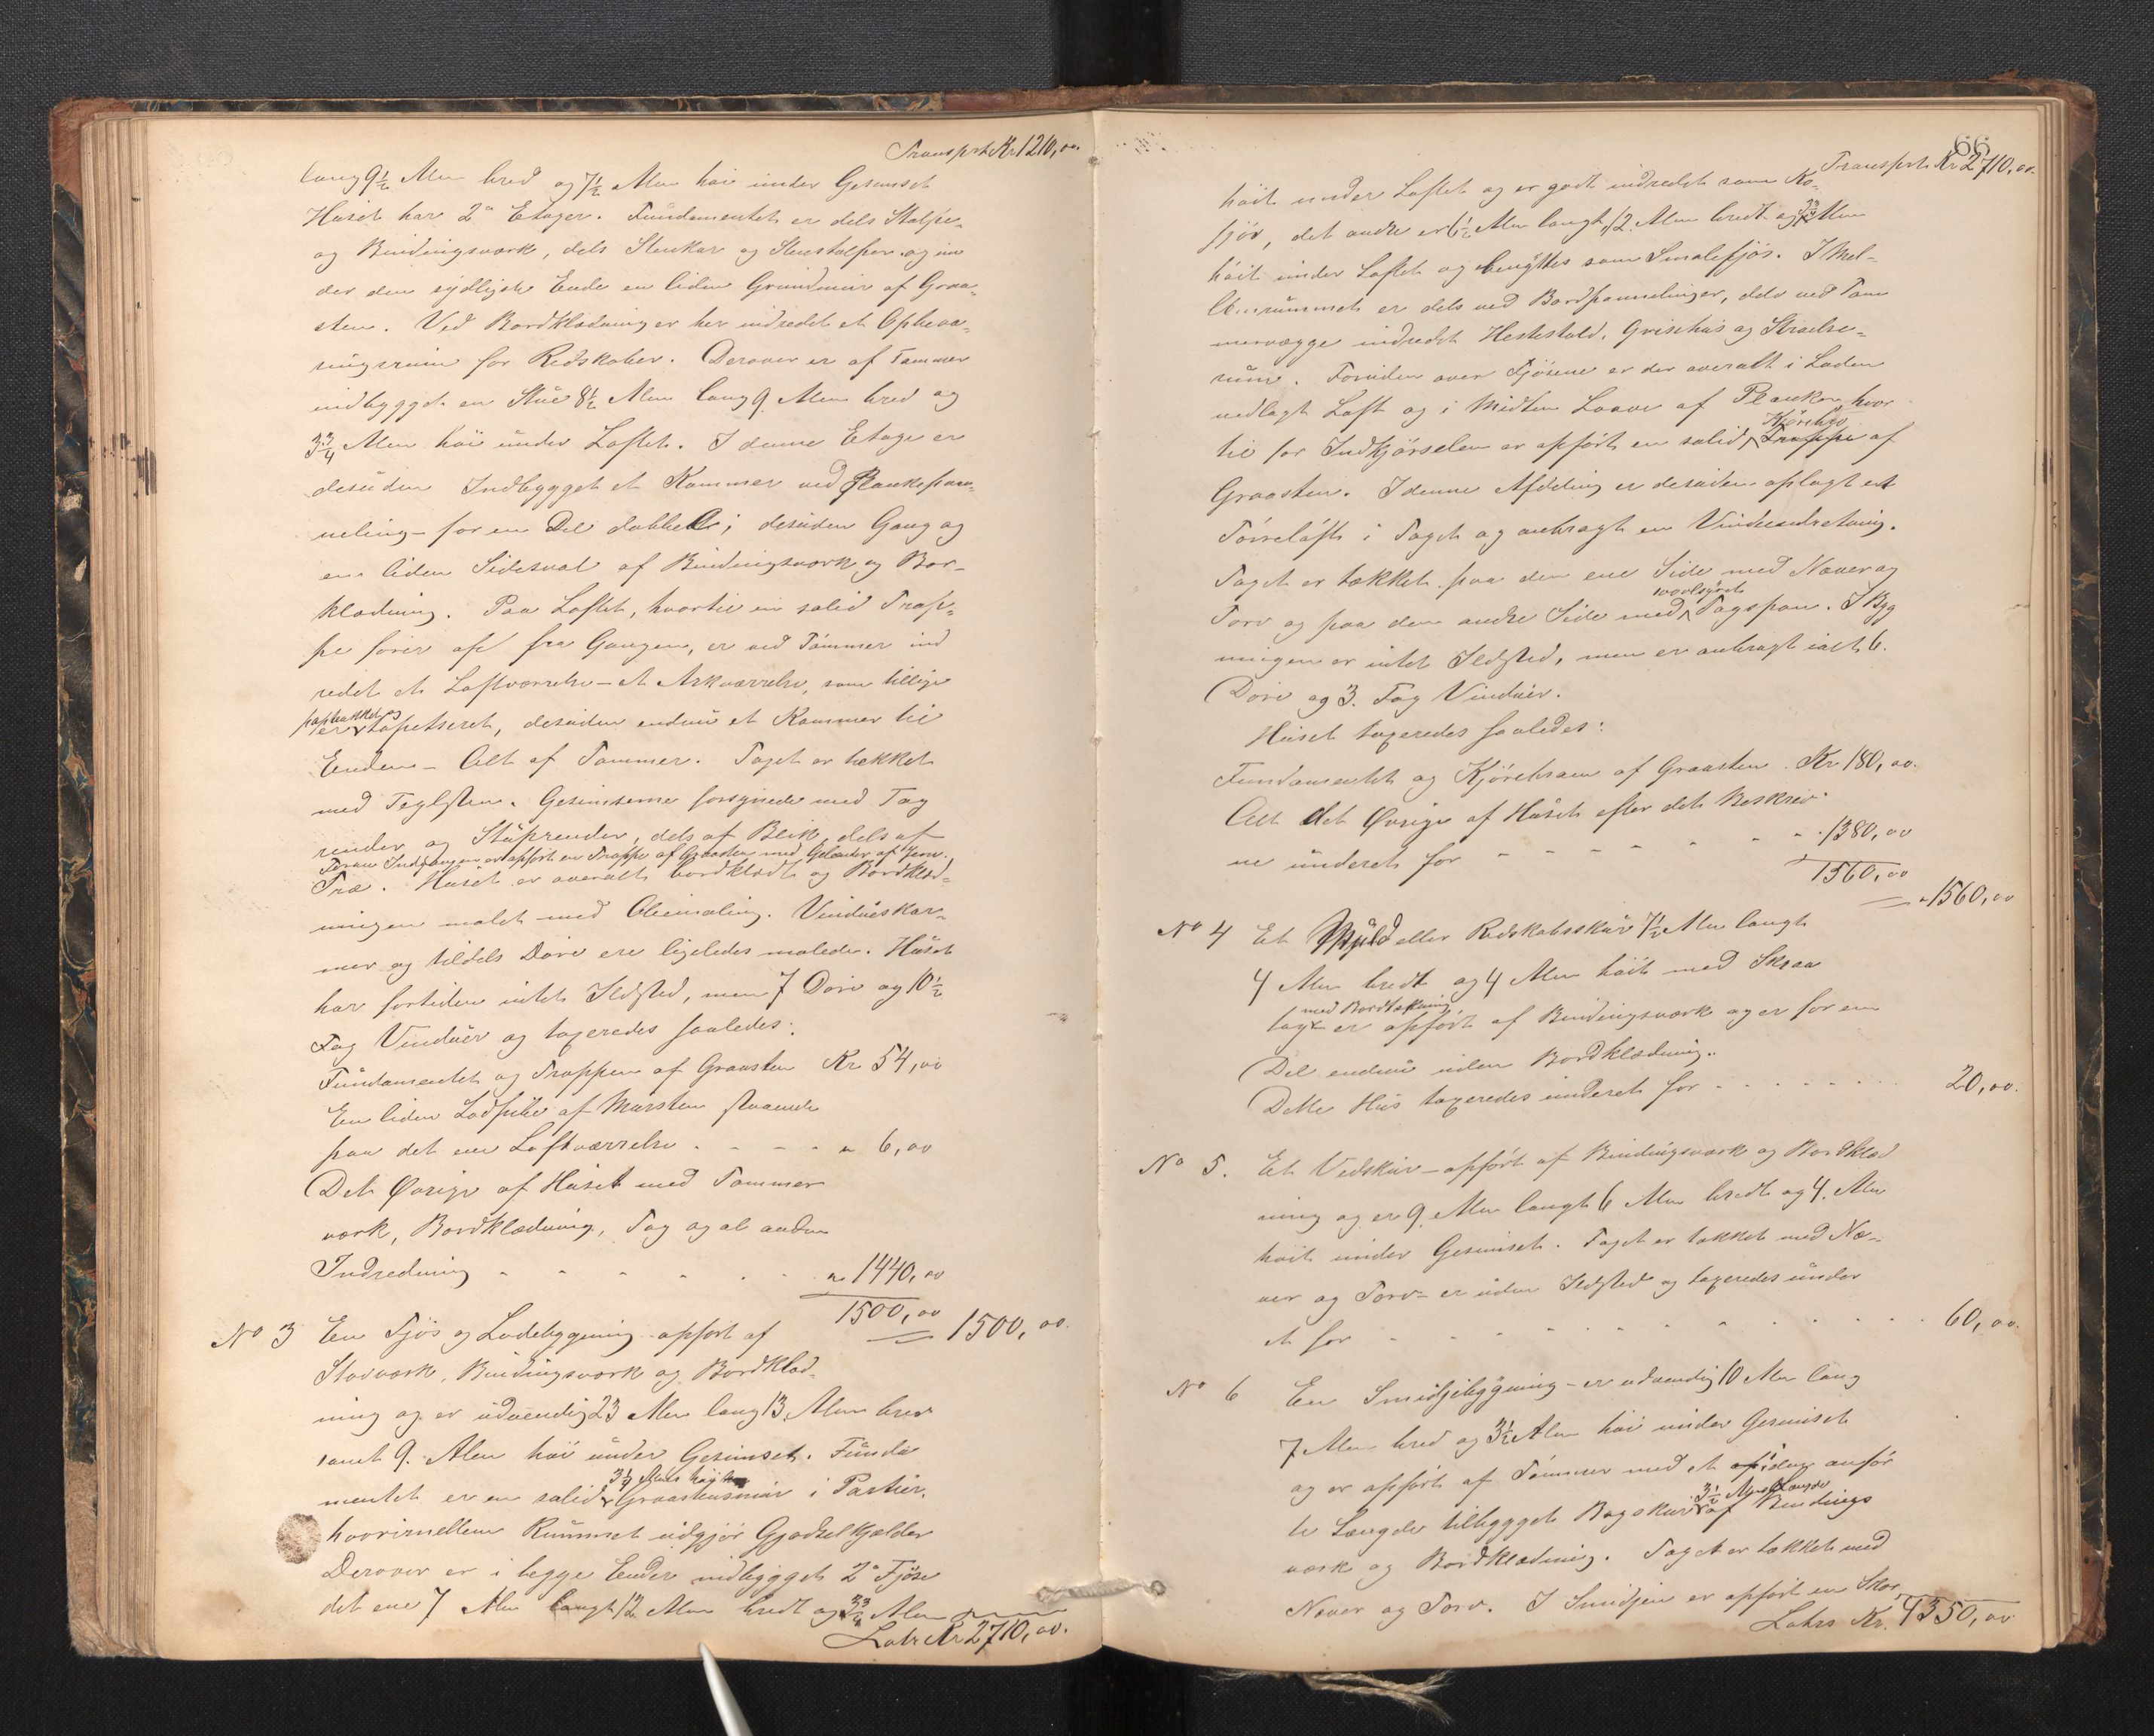 Transprt Kr 1210,00.
lang 9½ Alen bred og 7½ Alen høi under Gesimset
Huset har 2de Etager. Fundamentet er dels Stolpe-
og Bindingsværk, dels Stenkar og Stenstolper og un
der den sydligste Ende en liden Grundmur af Graa-
sten. Ved Bordklædning er her indredet et Opbeva-
ringsrum for Redskaber. Derover er af Tømmer
indbygget en Stue 8½ Alen lang 9 Alen bred og
3¾ Alen høi under Loftet. I denne Etage er
desuden Indbygget et Kammer ved Plankepan-
neling - for en Del dobbelt; desuden Gang og
en liden Sidesval af Bindingsværk og Bor-
klædning. Paa Loftet, hvortil en solid Trap-
pe fører op fra Gangen, er ved Tømmer ind
redet et Loftværrelse - et Arkværrelse, som tillige
er paptrukket og tapetseret, desuden endnu et Kammer til
Enden - Alt af Tømmer. Taget er tækket
med Teglsten. Gesimserne forsynede med Tag
render og Stuprender, dels af Blik, dels af
Foran Indgangen er opført en Trappe af Graasten med Gelænder af Jern.
Træ. Huset er overalt bordklædt og Bordklæd-
ningen malet med Oliemaling. Vindueskar-
mer og tildels Døre ere ligeledes malede. Huset
har fortiden intet Ildsted, men 7 Døre og 10½
Fag Vinduer og taxeredes saaledes:
Fundamentet og Trappen af Graasten Kr 54,00
En liden Lodpibe af Mursten staaende
paa det ene Loftværrelse - - - - " 6,00
Det Øvrige af Huset med Tømmer
værk, Bordklædning, Tag og al anden
Indredning - - - - - - " 1440,00
1500,00
No 3 En Fjøs og Ladebygning opført af = 1500,00.
Stavværk, Bindingsværk og Bordklæd-
ning og er udvendig 23 Alen lang 13 Alen bred
samt 9 Alen høi under Gesimset. Funda
mentet er en solid 3¼ Alens høi Graastensmur i Partier,
hvorimellem Rummet udgjør Gjødselkjælder
Derover er i begge Ender indbygget 2de Fjøse
det ene 7 Alen langt 12 Alen bredt og 3¾ Alen
Latr Kr 2710,00.
66
Transprt Kr 2710,00.
høit under Loftet og er godt indredet som Ko-
fjøs, det andre er 6½ Alen langt, 12 Alen bredt og 3¾ Alen
høit under Loftet og benyttes som Smalefjøs. I Mel-
lemrummet er dels ved Bordpannelinger, dels ved Tøm
mervægge indredet Hestestald, Grisehus og Strøelse-
rum. Foruden over Fjøsene er der overalt i Laden
nedlagt Loft og i Midten Laave af Planker, hvor
til for Indkjørselen er opført en solid Kjørebro Trappe af
Graasten. I denne Afdeling er desuden oplagt et
Tørreloft i Taget og anbragt en Vindueindretning.
Taget er tækket paa den ene Side med Næver og
Torv og paa den andre Side med Tagspon. I Byg
ningen er intet Ildsted, men er anbragt ialt 6
Døre og 3 Fag Vinduer.
Huset taxeredes saaledes:
Fundamentet og Kjørebroen af Graasten. Kr 180,00.
Alt det Øvrige af Huset efter det Beskrev-
ne underet for - - - - - - - " 1380,00
1560,00
= " 1560,00
No 4 Et Skjul eller Redskabsskur 7½ Alen langt
4 Alen bredt og 4 Alen høit med Skraa
tag med Bordtækning er opført af Bindingsværk og er for en
Del endnu uden Bordklædning.
Dette Hus taxeredes underet for - - - - - - - - 20,00.
No 5. Et Vedskur - opført af Bindingsværk og Bordklæd
ning og er 9 Alen langt 6 Alen bredt og 4 Alen
høit under Gesimset. Taget er tækket med Næ-
ver og Torv - er uden Ildsted og taxeredes under
et for - - - - - - - - - - - 60,00.
No 6 En Smidjebygning - er udvendig 10 Alen lang
7 Alen bred og 3½ Alen høi under Gesimset
og er opført af Tømmer med et anfør
te Længde tilbygget Bagskur af Bindings
værk og Bordklædning. Taget er tækket med
Næver og Torv. I Smidjen er opført en Skor
Latrs Kr. 4350,00